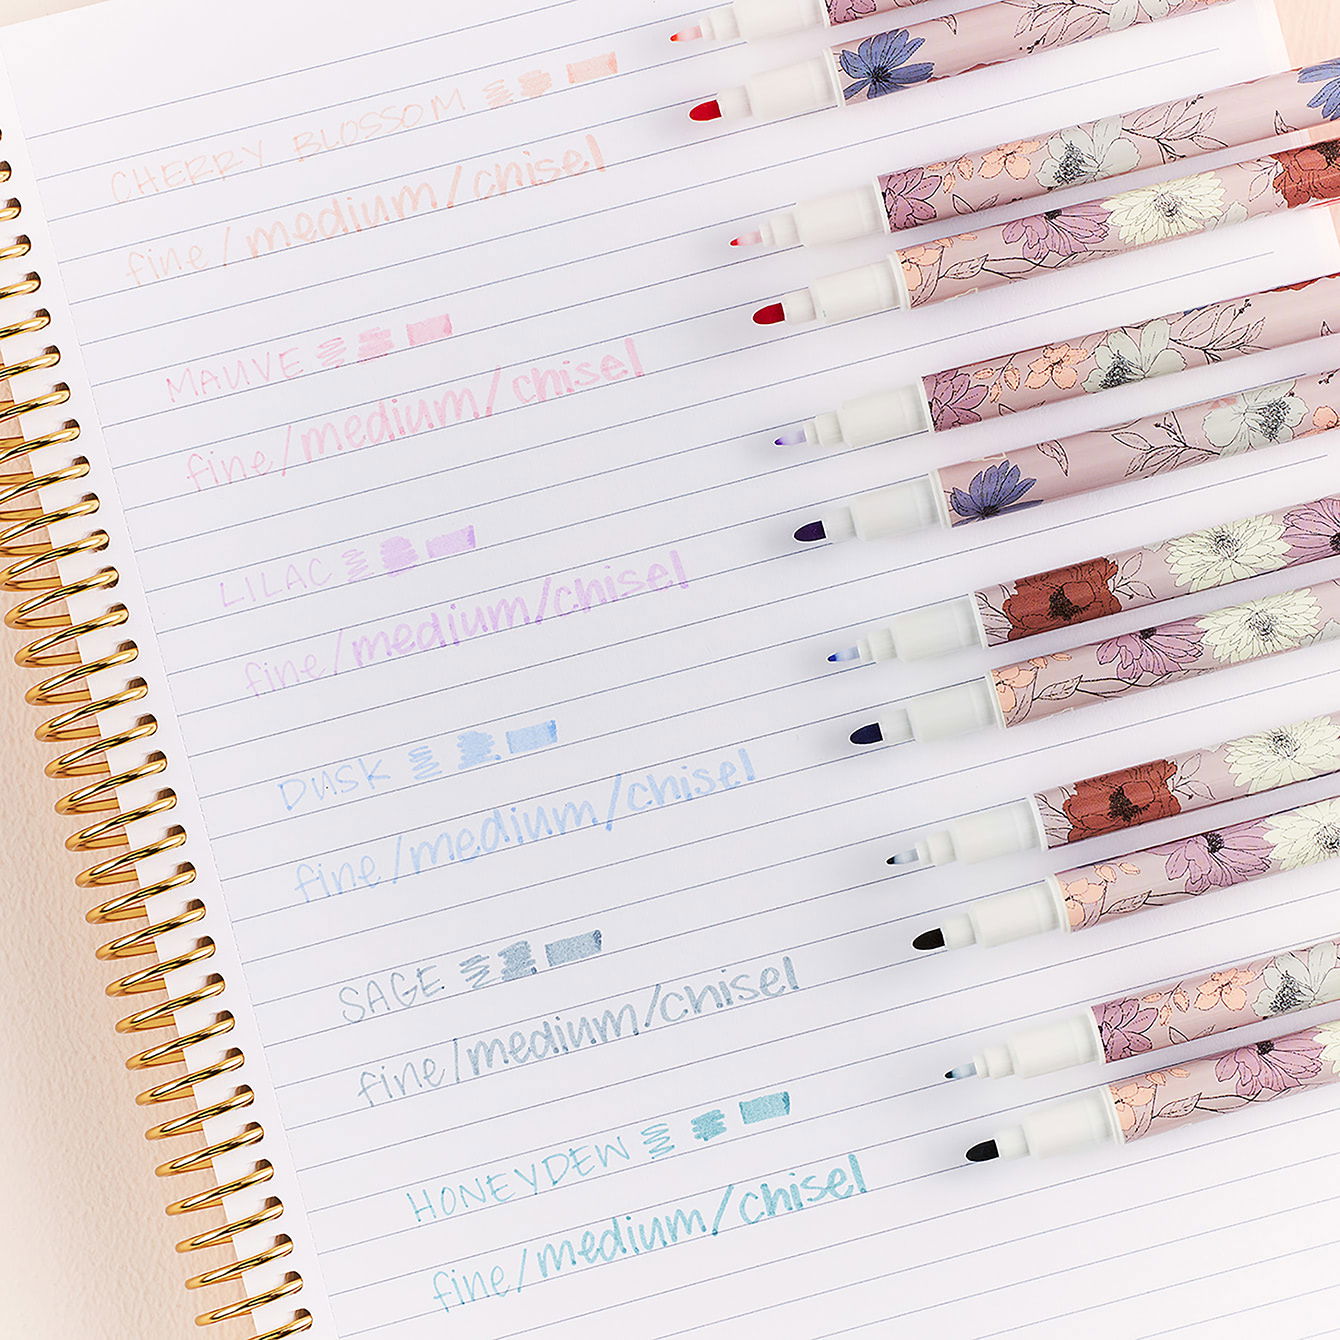 CHERRY BLOSSOM
fine/medium/chisel
MAUVE
fine/medium/chisel
LILAC
fine/medium/chisel
DUSK
fine/medium/chisel
SAGE
fine/medium/chisel
HONEYDEW
fine/medium/chisel